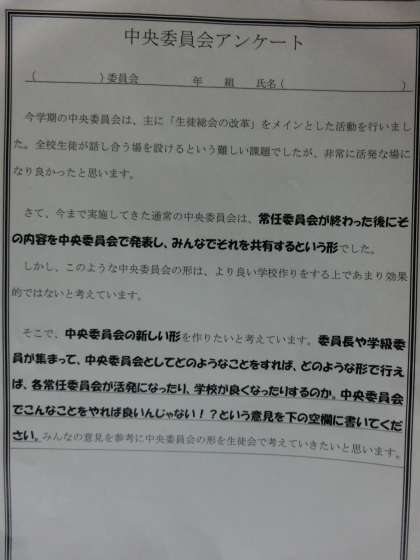 中央委員会アンケート
（　　　　　　）委員会　　　　　年　　組　　氏名（　　　　　　　　　　　）
今学期の中央委員会は、主に「生徒総会の改革」をメインとした活動を行いまし
た。全校生徒が話し合う場を設けるという難しい課題でしたが、非常に活発な場に
なり良かったと思います。
さて、今まで実施してきた通常の中央委員会は、常任委員会が終わった後にそ
の内容を中央委員会で発表し、みんなでそれを共有するという形でした。
しかし、このような中央委員会の形は、より良い学校作りをする上であまり効果
的ではないと考えています。
そこで、中央委員会の新しい形を作りたいと考えています。委員長や学級委
員が集まって、中央委員会としてどのようなことをすれば、どのような形で行え
ば、各常任委員会が活発になったり、学校が良くなったりするのか。中央委員会
でこんなことをやれば良いんじゃない！？という意見を下の空欄に書いてくだ
さい。みんなの意見を参考に中央委員会の形を生徒会で考えていきたいと思います。